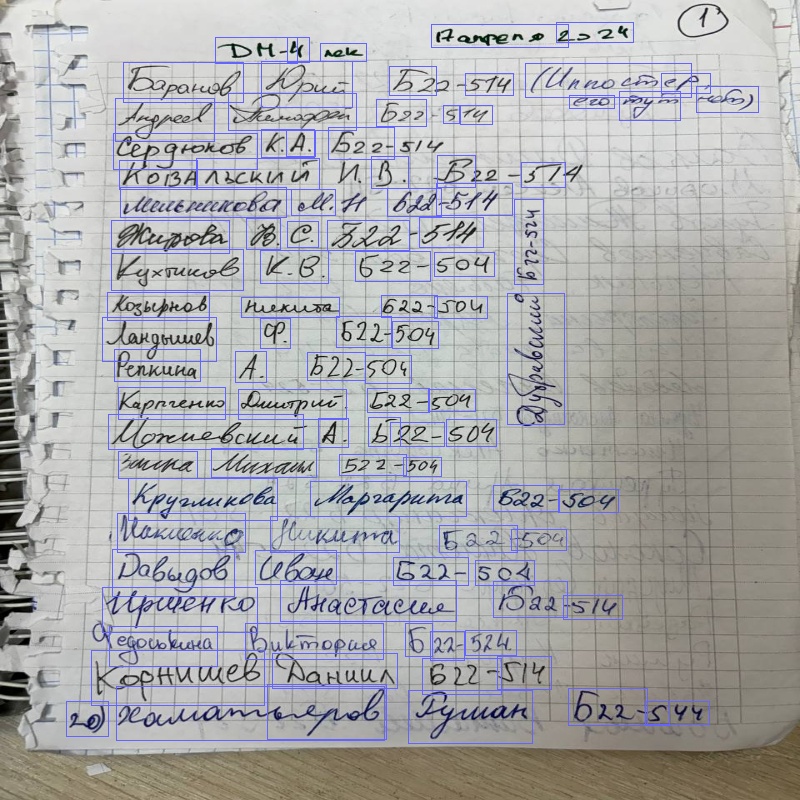 1
17 апреля 2024
DM-4 лек
Баранов Юрий Б22-514 (Иппостер,
его тут нет)
Андреев Тимофей Б22-514
Сердюков К.А. Б22-514
Ковальский И. В. Б22-514
Мельникова М. Н Б22-514
Жирова В. С. Б22-514
Кухтиков К.В. Б22-504
Дубревский Б22-524
Козырнов Никита Б22-504
Ландышев Ф. Б22-504
Репкина А. Б22-504
Карпченко Дмитрий Б22-504
Можиевский А. Б22-504
Заика Михаил Б22-504
Кругликова Маргарита Б22-504
Никита Б22-504
Давыдов Иван Б22-504
Ирщенко Анастасия Б22-514
Федоськина Виктория Б22-524
Корнишев Даниил Б22-514
20) Хаматьяров Руслан Б22-544